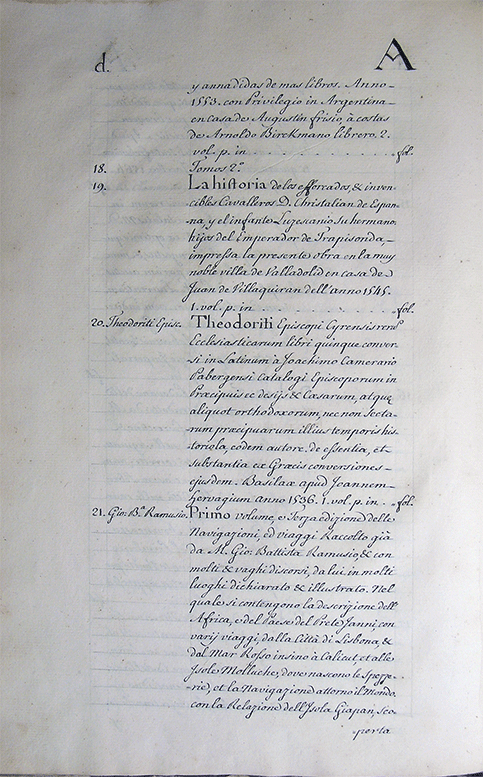 d. A
y annadidas de mas libros. Anno
1553. con Privilegio in Argentina
en casa de Augustin frisio, à costas
de Arnoldo Birckmano librero. 2.
vol. p. in . . . . . . . . . fol.
18. Tomos 2º
19. La historia de los esforcados, & inven
cibles Cavalleros D. Christalian de Espan
na, y el infante Luzescanio su hermano
hijos del Emperador de Trapisonda,
impressa la presente obra en la muy
noble villa de Valladolid en casa de
Juan de Villaquiran dell'anno 1545.
1. vol. p. in . . . . . . . . fol.
20. Theodoriti Episc. Theodoriti Episcopi Cyrensis
Ecclesiasticarum libri quinque conver
si in Latinum à Joachimo Camerario
Pabergensi Catalogi Episcoporum in
Præcipuis ec desijs & Cæsarum, atque
aliquot orthodoxorum, nec non Secta-
rum præcipuarum illius temporis his-
toriola, eodem autore. de essentia, et
substantia ex Græcis conversiones
ejusdem. Basilææ apud Joannem
Hervagium Anno 1536. 1. vol. p. in . fol.
21. Gio: Bª Ramusio. Primo volume, e Terza edizione delle
Navigazioni, ed viaggi Raccolto già
da M. Gio: Battista Ramusio, & con
molti & vaghi discorsi, da lui in molti
luoghi dichiarato & illustrato. Nel
quale si contengono la descrizione dell'
Africa, e del Paese del Prete Janni, con
varij viaggi, dalla Città di Lisbona, &
dal Mar Rosso insino à Calicut, et alle
Isole Molluche, dove nascono le Spezze-
rie, et la Navigazione attorno il Mondo.
con la Relazione dell'Isola Giapan, Sco-
perta